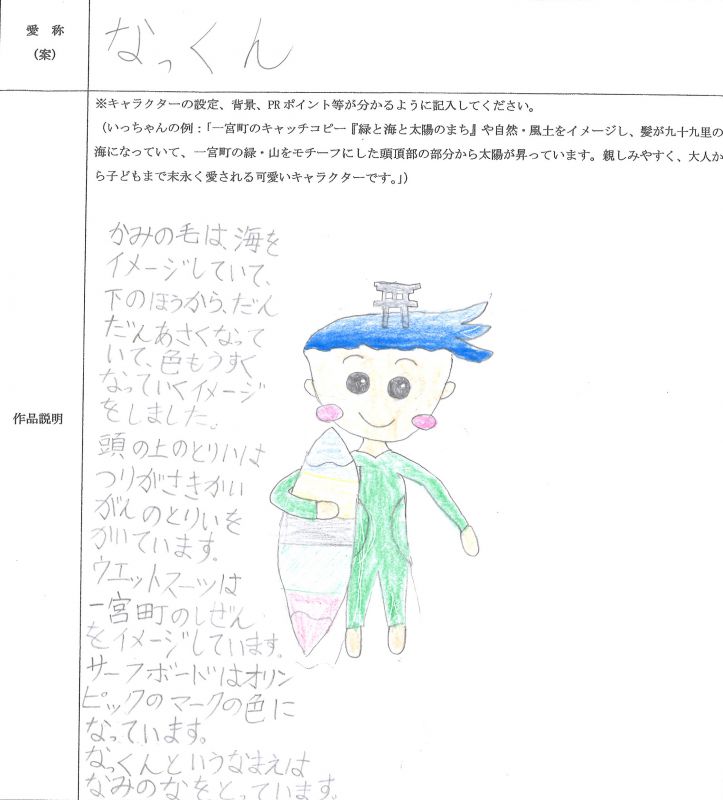 愛 称
(案)
なっくん
※キャラクターの設定、背景、PRポイント等が分かるように記入してください。
(いっちゃんの例：「一宮町のキャッチコピー『緑と海と太陽のまち』や自然・風土をイメージし、髪が九十九里の
海になっていて、一宮町の緑・山をモチーフにした頭頂部の部分から太陽が昇っています。親しみやすく、大人か
ら子どもまで末永く愛される可愛いキャラクターです。」)
作品説明
かみの毛は、海を
イメージしていて、
下のほうから、だん
だんあさくなって
いて、色もうすく
なっていくイメージ
をしました。
頭の上のとりいは
つりがさきかい
がんのとりいを
かいています。
ウエットスーツは
一宮町のしぜん
をイメージしています。
サーフボードはオリン
ピックのマークの色に
なっています。
なっくんというなまえは
なみのなをとっています。